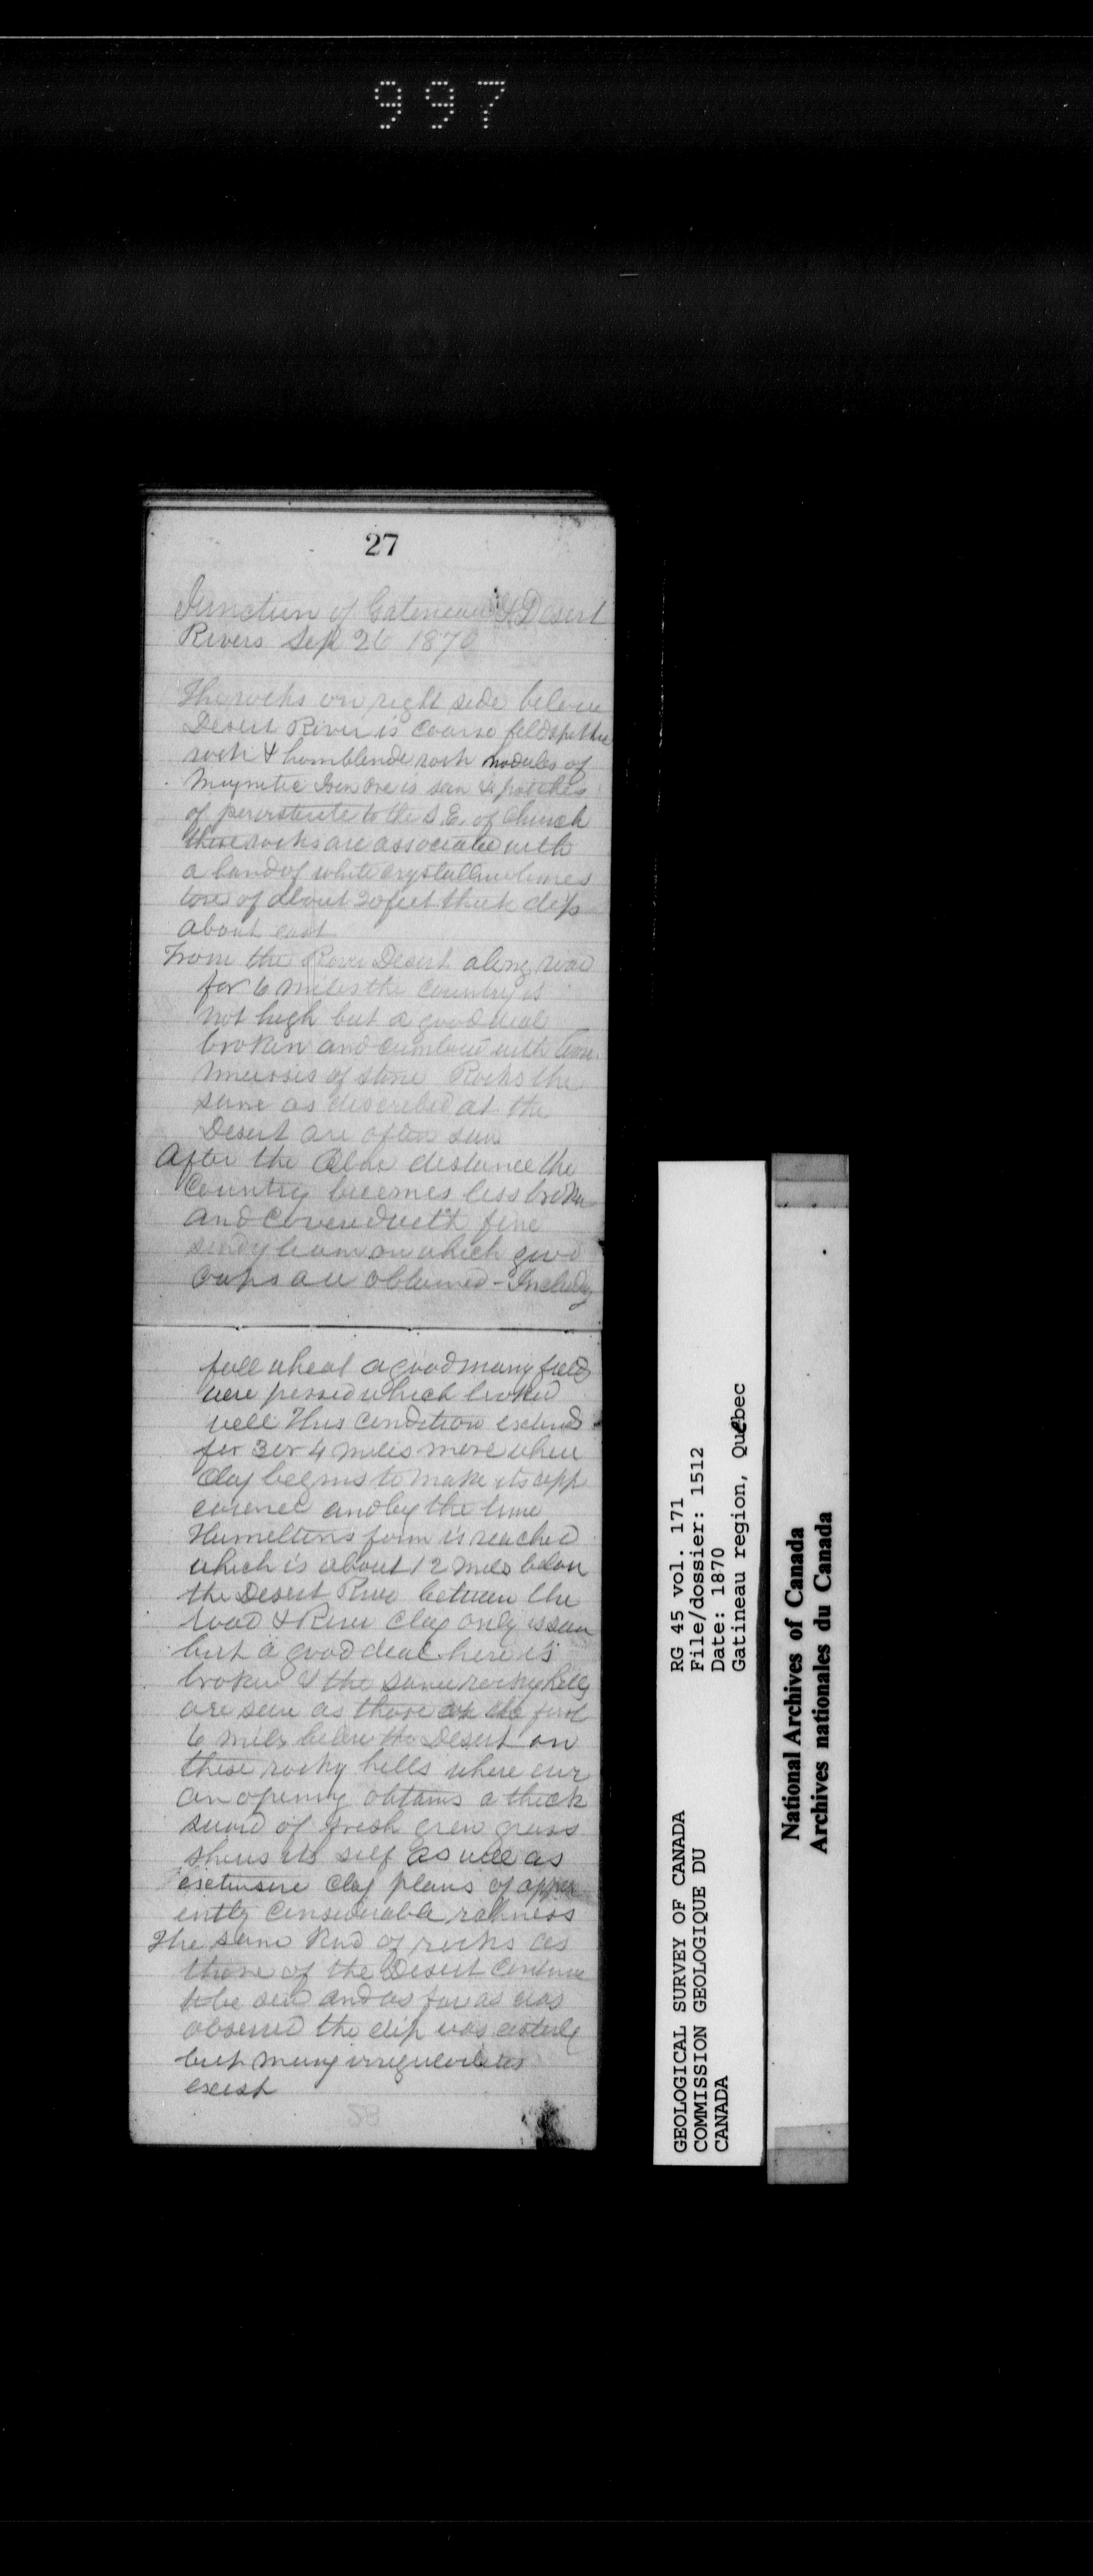 997
27
Junction of Gatineau & Desert
Rivers Sep 26 1870
The rocks on right side below
Desert River is coarse feldspathic
rock & hornblende rock nodules of
Magnetic Iron Ore is seen & patches
of to the S.E. of Church
these rocks are associated with
a band of white crystalline limes
tone of about 20 feet thick dips
about east
From the River Desert along road
for 6 miles the country is
not high but a good deal
broken and with loose
of stone Rocks the
same as described at the
Desert are often seen
After the distance the
Country becomes less broken
and covered with fine
sandy loam on which good
crops are obtained - Including
fall wheat a good many fields
were passed which looked
well This condition extends
for 3 or 4 miles more when
Clay begins to make its app
earence and by the time
Hameltons farm is reached
which is about 12 miles below
the Desert River between the
road & River Clay only is seen
but a good deal here is
broken & the same rocky hills
are seen as those on the first
6 miles below the Desert on
these rocky hills where ever
an opening obtains a thick
sward of fresh green grass
shews its self as well as
extensive clay plains of appar
ently considerable
The same kind of rocks as
those of the Desert continue
to be seen and as far as was
observed the dip was easterly
but many irregularities
exist
58
GEOLOGICAL SURVEY OF CANADA
COMMISSION GEOLOGIQUE DU
CANADA
RG 45 vol. 171
File/dossier: 1512
Date: 1870
Gatineau region, Québec
National Archives of Canada
Archives nationales du Canada